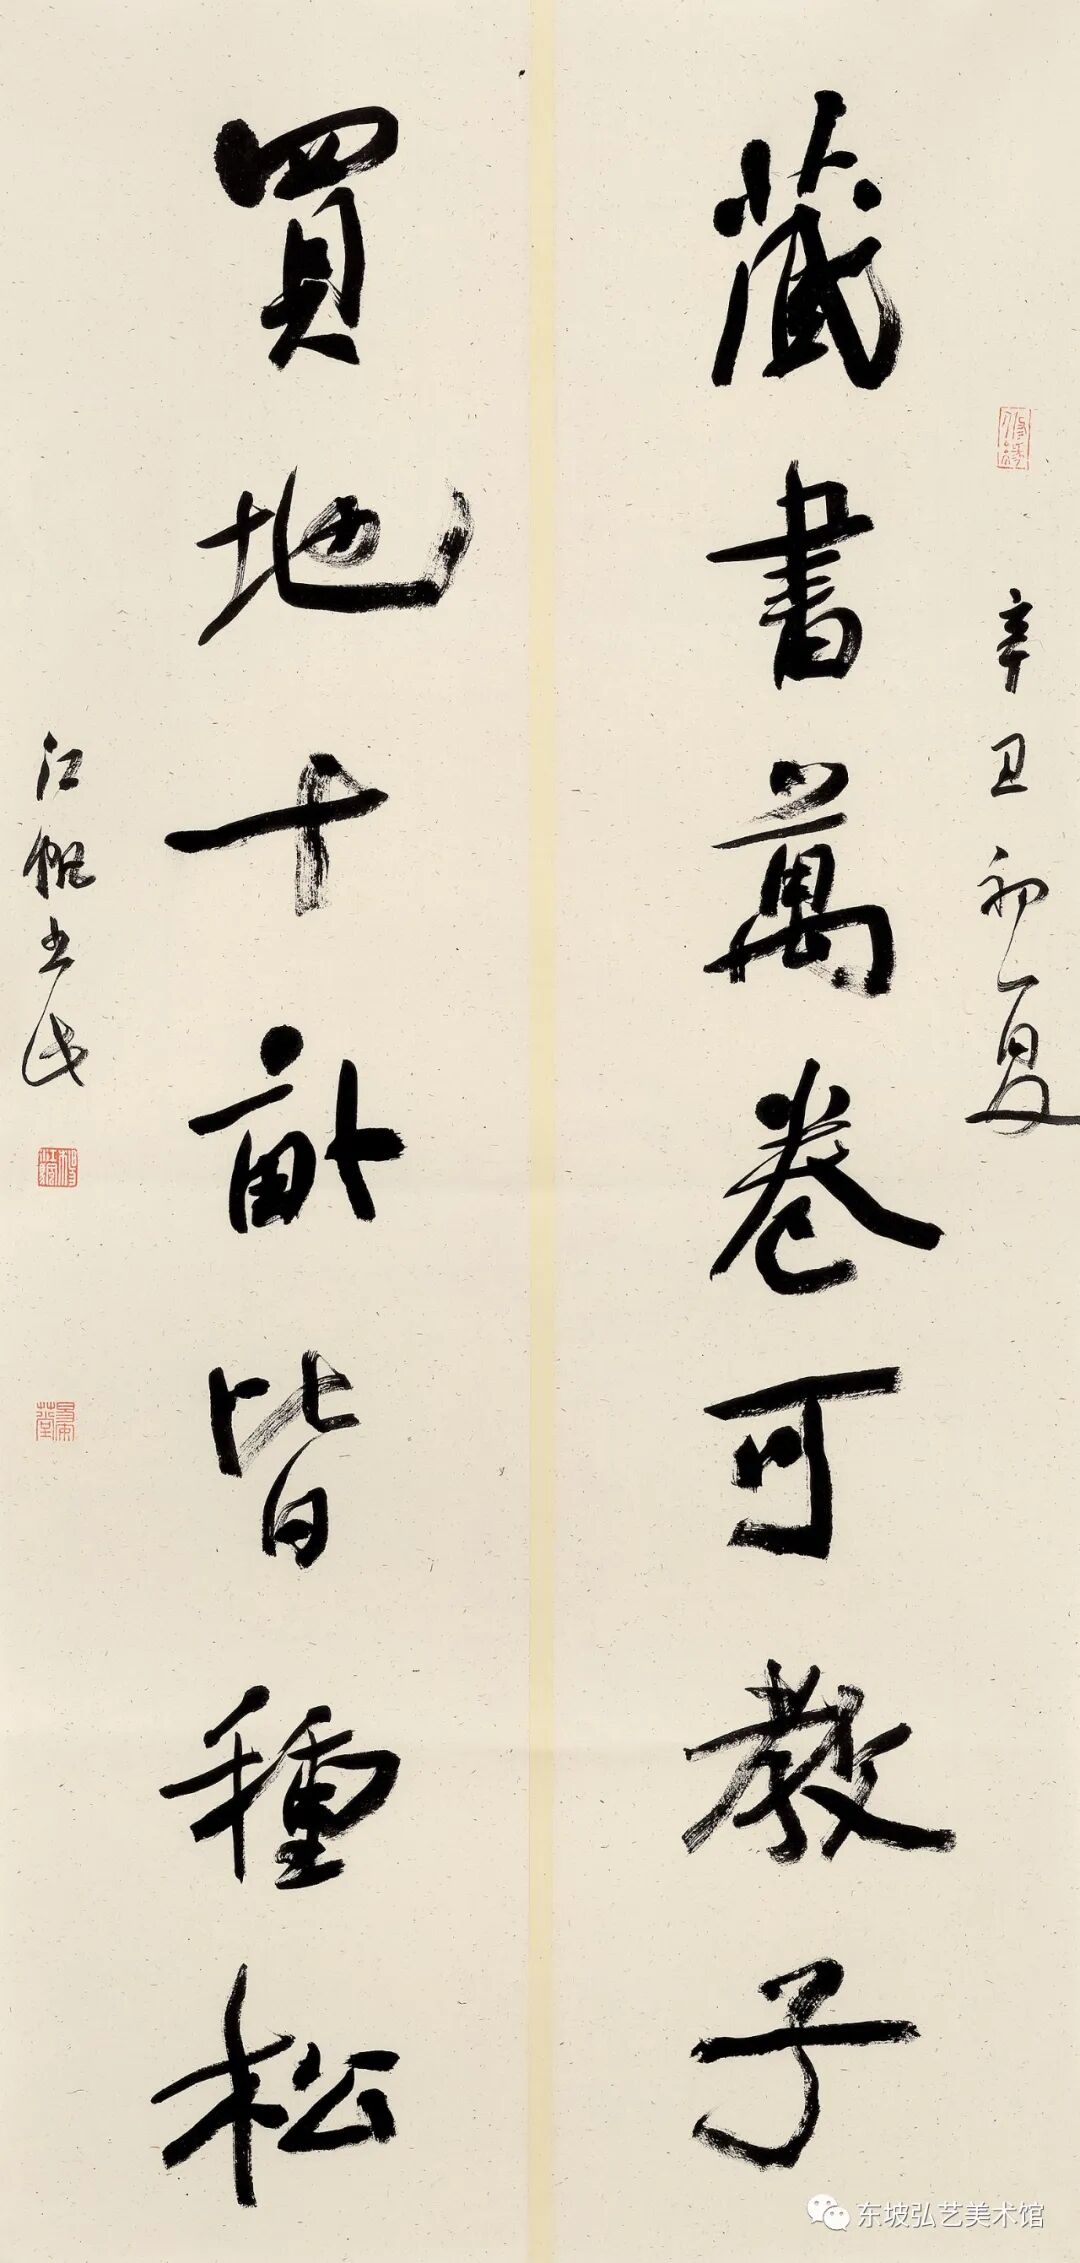 辛丑初夏
藏書萬卷可教子
買地十畝皆種松
江帆書
东坡弘艺美术馆